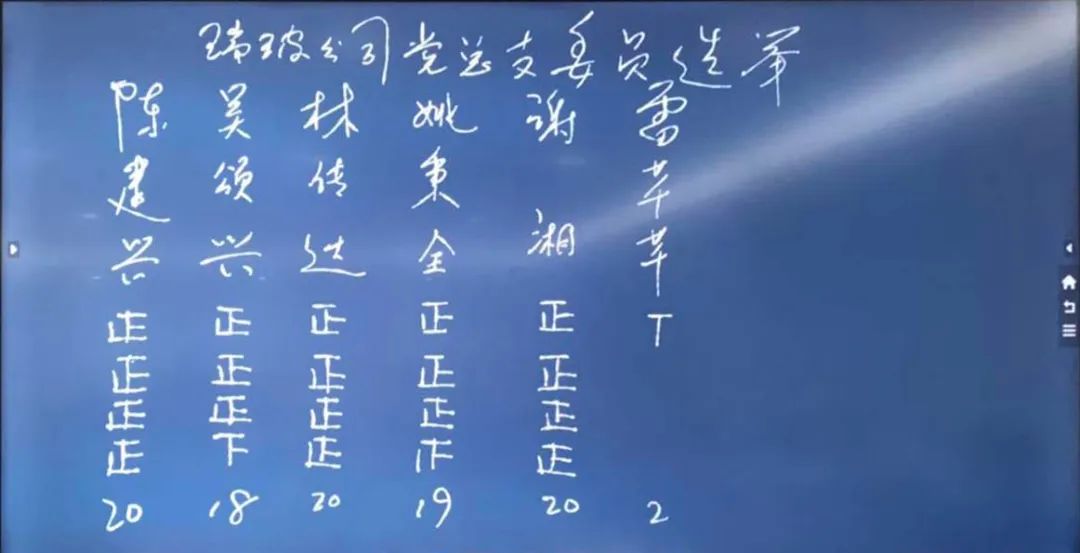 瑞玻公司党总支委员选举
陈建兴 正正正正 20
吴颂兴 正正正下 18
林传 正正正正 20
姚秉全 正正正 19
谢湘 正正正正 20
雷芊芊 T 2